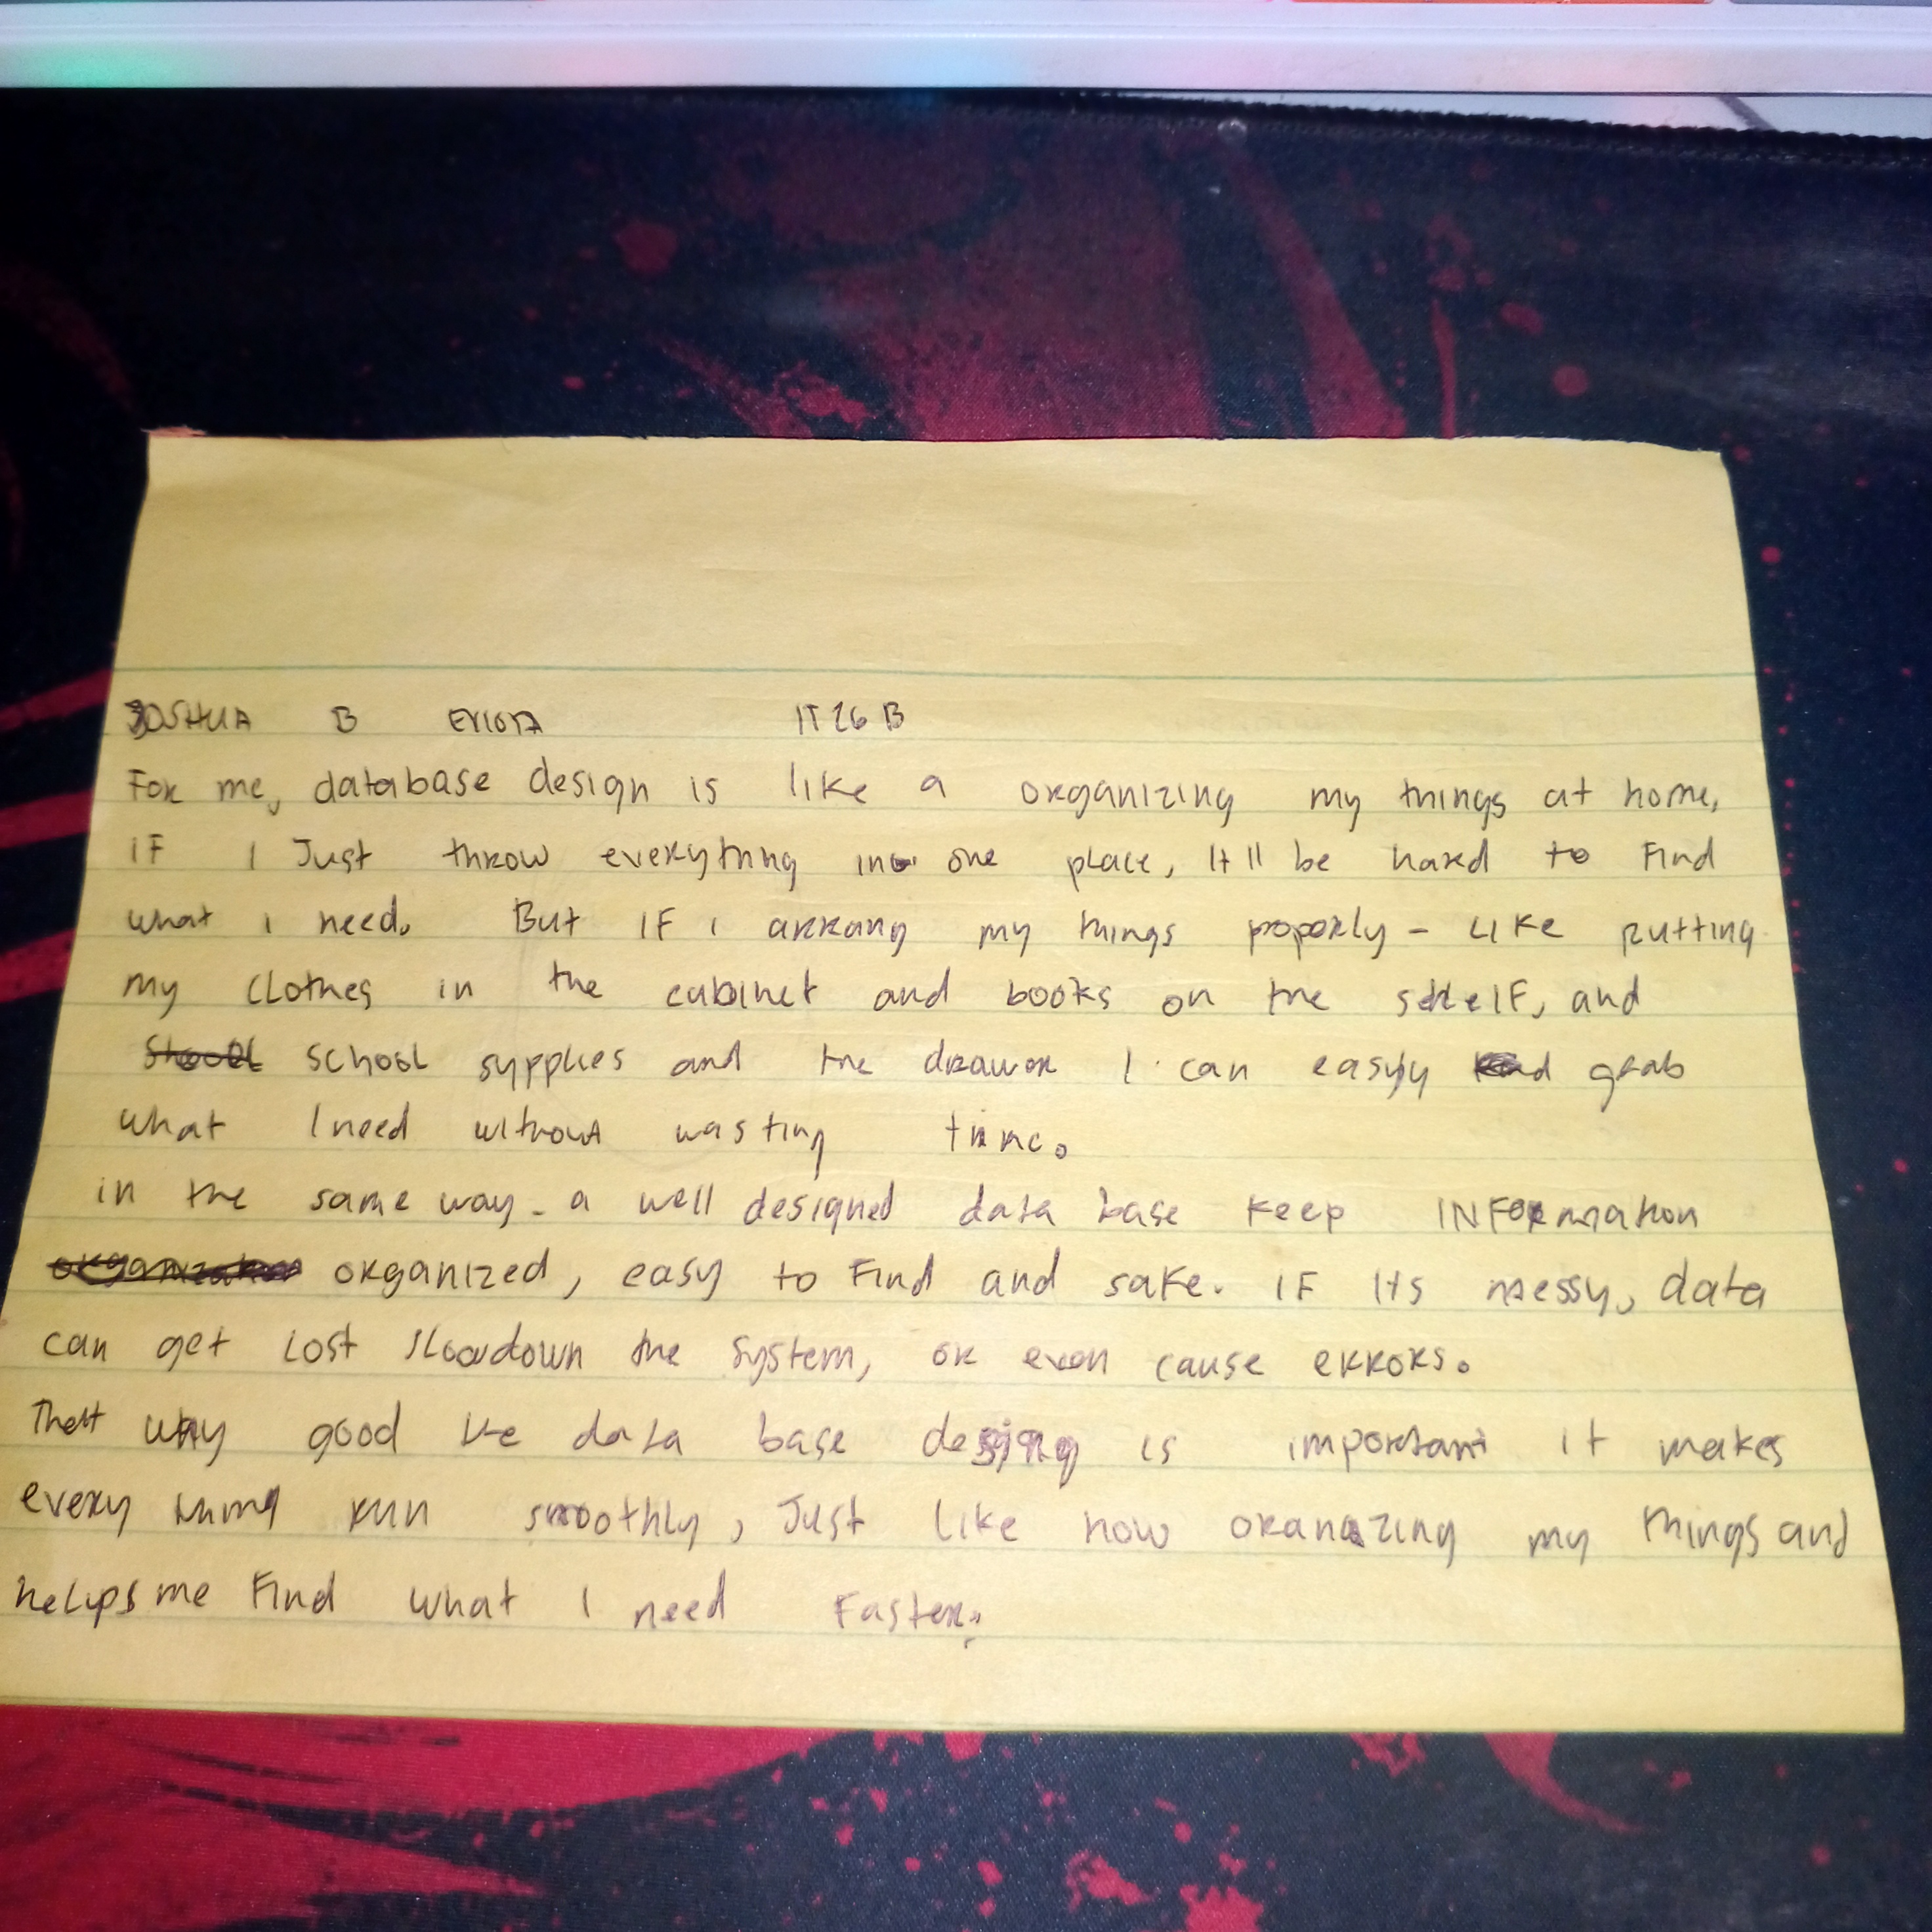 JOSHUA B IT26B
For me, database design is like a organizing my things at home,
IF I Just throw everything in one place, It'll be hard to Find
what i need. But IF i arrang my things properly - Like putting
my clothes in the cabinet and books on the shelf, and
school supplies and the drawer I can easyly grab
what I need without wasting time.
in the same way - a well designed data base keep INFormation
organized, easy to Find and safe. IF Its messy, data
can get Lost slowdown the system, or even cause errors.
That why good data base desging is important it makes
every thing run smoothly, Just Like how oranazing my things and
helps me Find what I need Faster.